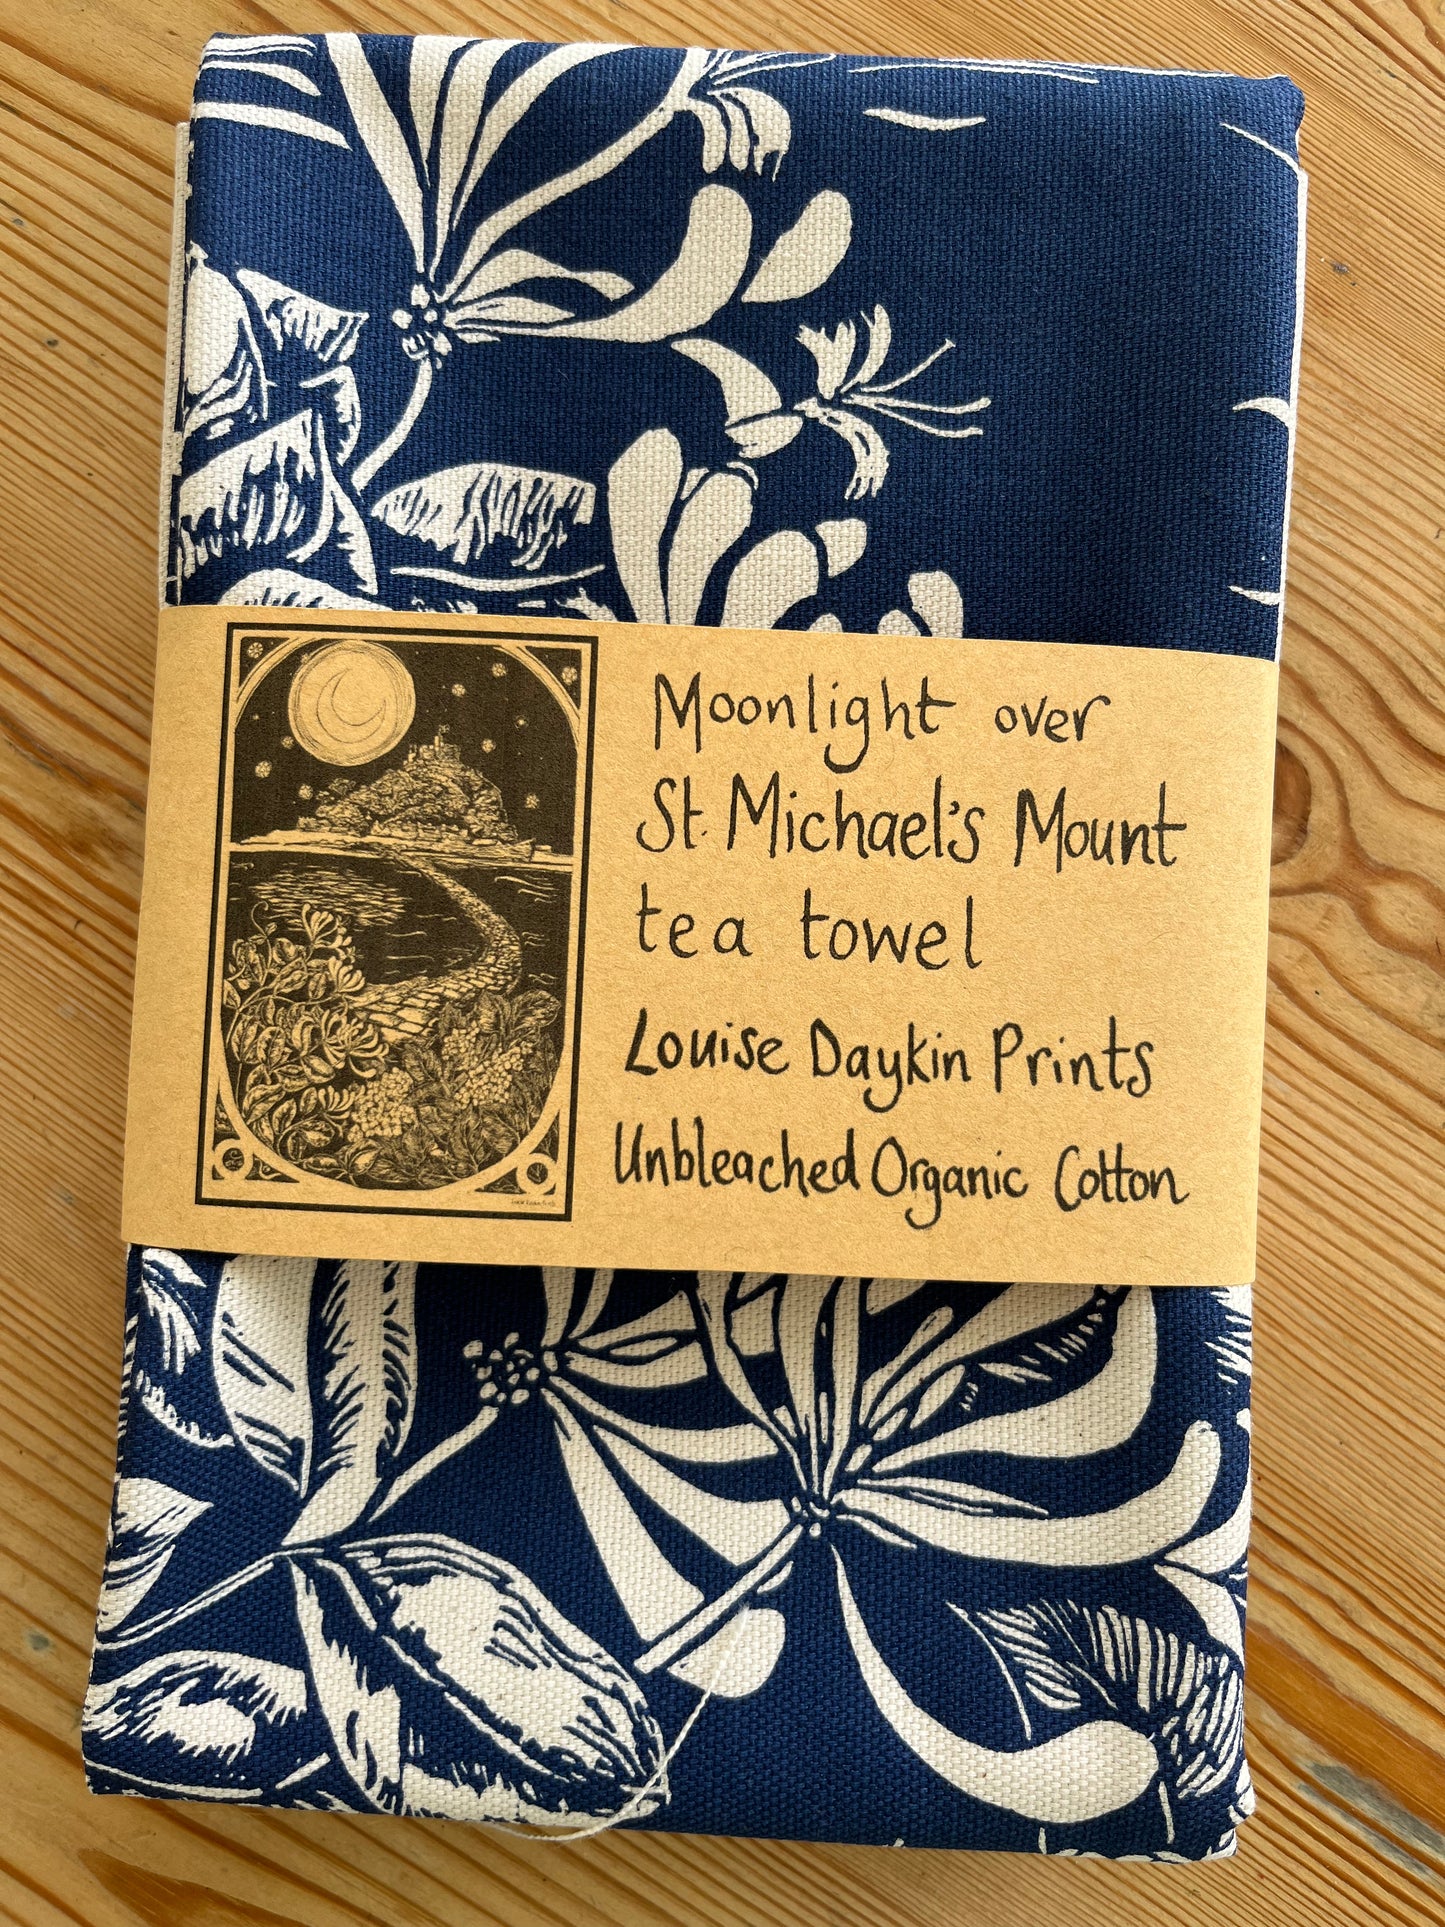 Moonlight over
St. Michael's Mount
tea towel
Louise Daykin Prints
Unbleached Organic Cotton